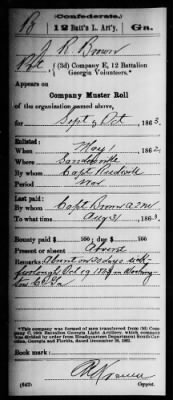 (Confederate.)
B 12 Batt'n L. Art'y. Ga.
J. R. Brown
Pvt (3d) Company E, 12 Battalion
Georgia Volunteers.*
Appears on
Company Muster Roll
of the organization named above,
for Sept & Oct, 1863.
Enlisted:
When May 1, 1862.
Where Sandersville
By whom Capt. Rudisill
Period War
Last paid:
By whom Capt Brown AQM
To what time Aug 31, 1863.
Bounty paid $ 100; due $ 100
Present or absent Absent
Remarks: Absent on 30 days sick
furlough 1863 in Washing-
ton Co Ga
*This company was formed of men transferred from (3d) Company
Book mark:
(642) Copyist.